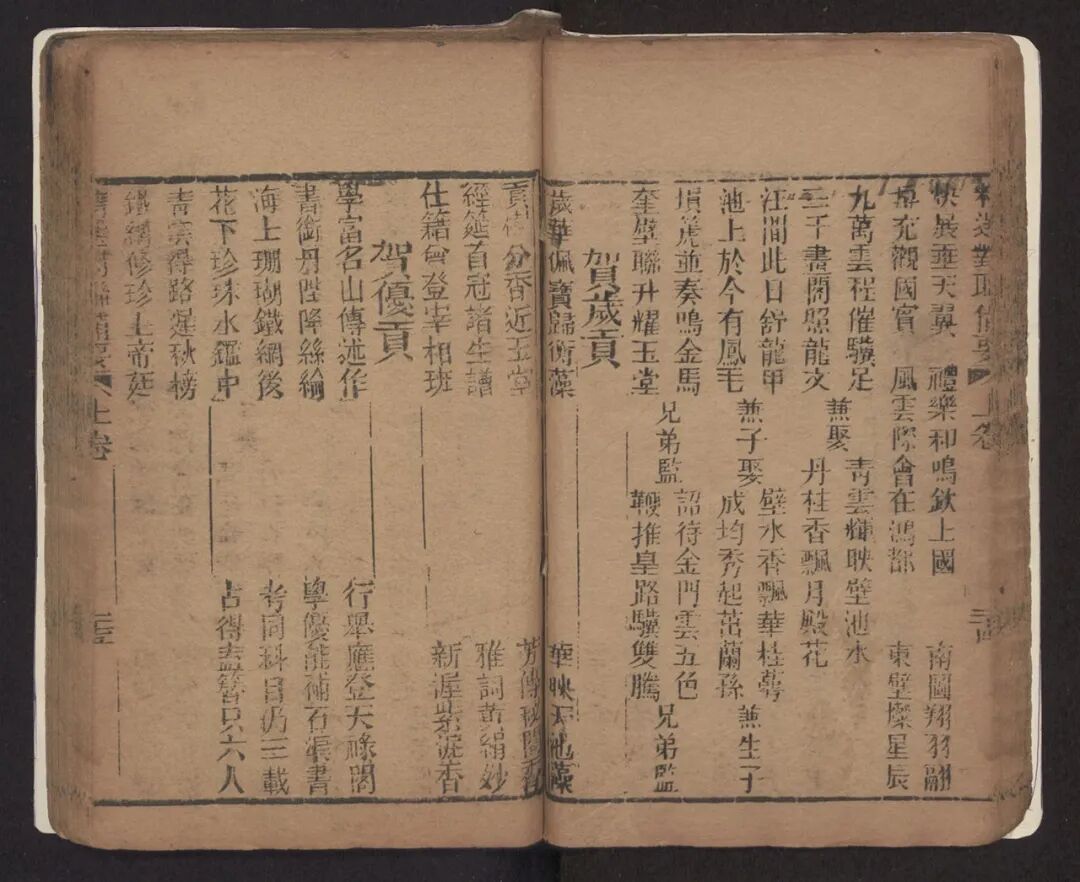 對聯備要 上卷
快展垂天翼 禮樂和鳴欽上國 南圖翔羽翮
充觀國賓 風雲際會在鴻都 東壁燦星辰
九萬雲程催驥足 兼娶 青雲輝映壁池水
三千書閣照龍文 丹桂香飄月殿花
江間此日舒龍甲 兼子娶 壁水香飄華桂萼 兼生子
池上於今有鳳毛 成均秀起茁蘭孫
塤篪並奏鳴金馬 兄弟監 詔待金門雲五色 兄弟監
奎壁聯升耀玉堂 鞭推皇路驥雙騰
賀歲貢
歲華佩寶歸衡藻 華映天池藻
貢樹分香近玉堂 芳傳秘閣
經筵首冠諸生譜 雅詞黃絹妙
仕籍曾登宰相班 新渥紫泥香
賀優貢
學富名山傳述作 行舉應登天祿閣
書銜丹陛降絲綸 學優能補石渠書
海上珊瑚鐵網後 考同科目仍三載
花下珍珠水鑑中 占得盍簪只六人
青雲得路遲秋榜
鐵網修珍上帝廷
上卷